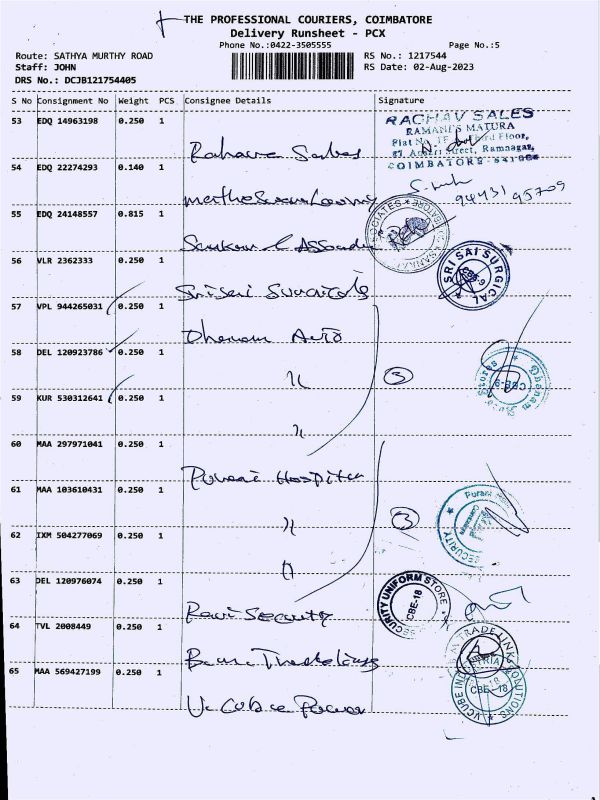 THE PROFESSIONAL COURIERS, COIMBATORE
Delivery Runsheet - PCX
Phone No.:0422-3505555
Page No.:5
Route: SATHYA MURTHY ROAD
RS No.: 1217544
Staff: JOHN
RS Date: 02-Aug-2023
DRS No.: DCJB121754405
S No Consignment No Weight PCS Consignee Details Signature
53 EDQ 14963198 0.250 1
RAGHAV SALES
RAMANI'S MATURA
Third Floor,
Street, Ramnagar,
COIMBATORE
54 EDQ 22274293 0.140 1
94431 95709
55 EDQ 24148557 0.815 1
56 VLR 2362333 0.250 1
SRI SAI SURGICAL
CBE-9
57 VPL 944265031 0.250 1
Dhanam Auto
58 DEL 120923786 0.250 1
"
3
Dhanam Stores
CBE-9
59 KUR 530312641 0.250 1
"
60 MAA 297971041 0.250 1
Purani Hospital
61 MAA 103610431 0.250 1
"
3
Purani
SECURITY
62 IXM 504277069 0.250 1
"
63 DEL 120976074 0.250 1
Ravi Security
SECURITY UNIFORM STORE
CBE-18
64 TVL 2008449 0.250 1
TRADE LINKS
65 MAA 569427199 0.250 1
VCUBE SOLUTIONS
CBE-18